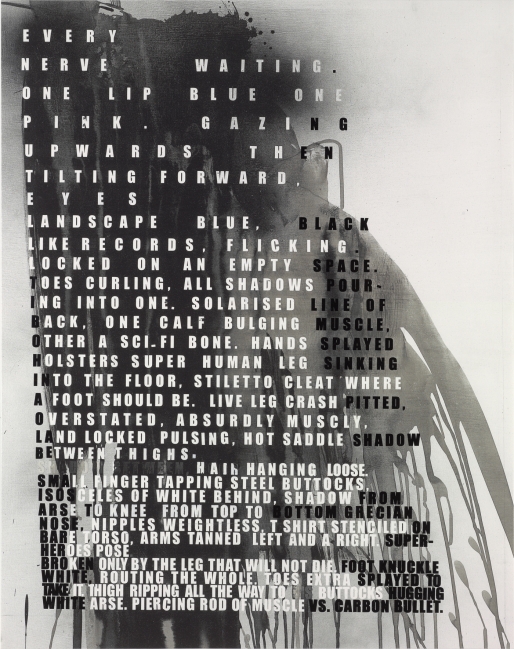 EVERY
NERVE WAITING.
ONE LIP BLUE ONE
PINK. GAZING
UPWARDS THEN
TILTING FORWARD,
EYES
LANDSCAPE BLUE, BLACK
LIKE RECORDS, FLICKING.
LOCKED ON AN EMPTY SPACE.
TOES CURLING, ALL SHADOWS POUR-
ING INTO ONE. SOLARISED LINE OF
BACK, ONE CALF BULGING MUSCLE,
OTHER A SCI-FI BONE. HANDS SPLAYED
HOLSTERS SUPER HUMAN LEG SINKING
INTO THE FLOOR, STILETTO CLEAT WHERE
A FOOT SHOULD BE. LIVE LEG CRASH PITTED,
OVERSTATED, ABSURDLY MUSCLY,
LAND LOCKED PULSING, HOT SADDLE SHADOW
BETWEEN THIGHS.
HAIR HANGING LOOSE.
SMALL FINGER TAPPING STEEL BUTTOCKS,
ISOSCELES OF WHITE BEHIND, SHADOW FROM
ARSE TO KNEE FROM TOP TO BOTTOM GRECIAN
NOSE, NIPPLES WEIGHTLESS. T SHIRT STENCILED ON
BARE TORSO, ARMS TANNED LEFT AND A RIGHT, SUPER-
HEROES POSE
BROKEN ONLY BY THE LEG THAT WILL NOT DIE. FOOT KNUCKLE
WHITE. ROUTING THE WHOLE. TOES EXTRA SPLAYED TO
TAKE IT. THIGH RIPPING ALL THE WAY TO BUTTOCKS HUGGING
WHITE ARSE. PIERCING ROD OF MUSCLE VS. CARBON BULLET.